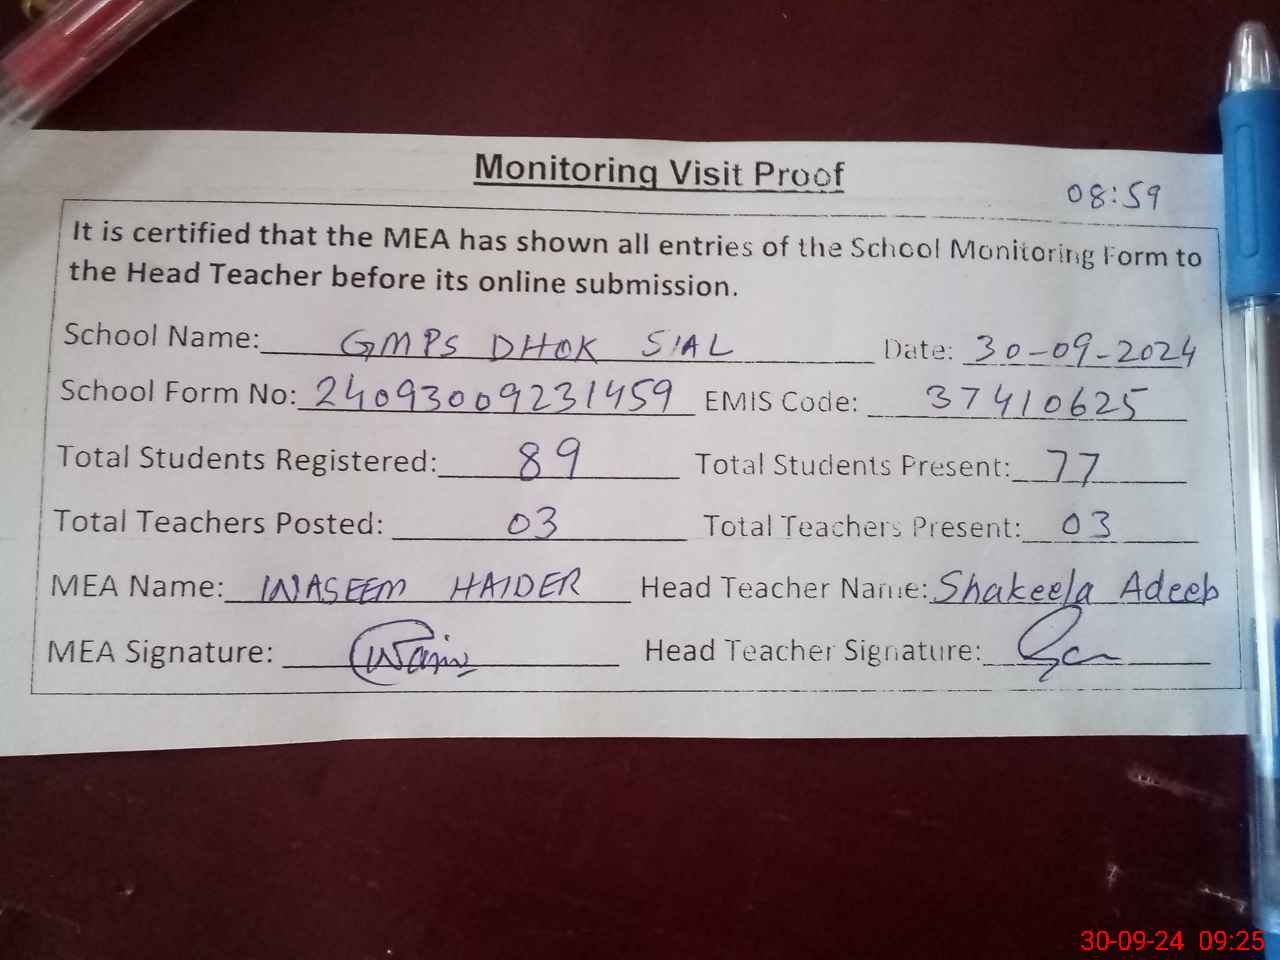 Monitoring Visit Proof
08:59
It is certified that the MEA has shown all entries of the School Monitoring Form to
the Head Teacher before its online submission.
School Name: GMPS DHOK SIAL Date: 30-09-2024
School Form No: 24093009231459 EMIS Code: 37410625
Total Students Registered: 89 Total Students Present: 77
Total Teachers Posted: 03 Total Teachers Present: 03
MEA Name: WASEEM HAIDER Head Teacher Name: Shakeela Adeeb
MEA Signature: Head Teacher Signature:
30-09-24 09:25